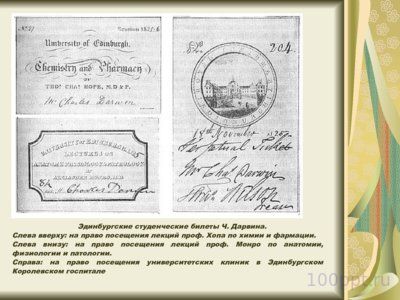 University of Edinburgh.
Chemistry and Pharmacy
BY
THOS CHAs HOPE, M.D & P.
Mr Charles Darwin
UNIVERSITY OF EDINBURGH
LECTURES ON
ANATOMY, PHYSIOLOGY & PATHOLOGY
BY
ALEXANDER MONRO M.D.
Charles Darwin
204.
18th November
Perpetual Ticket
Mr Chas Darwin
Эдинбургские студенческие билеты Ч. Дарвина.
Слева вверху: на право посещения лекций проф. Хопа по химии и фармации.
Слева внизу: на право посещения лекций проф. Монро по анатомии,
физиологии и патологии.
Справа: на право посещения университетских клиник в Эдинбургском
Королевском госпитале
100ppt.ru